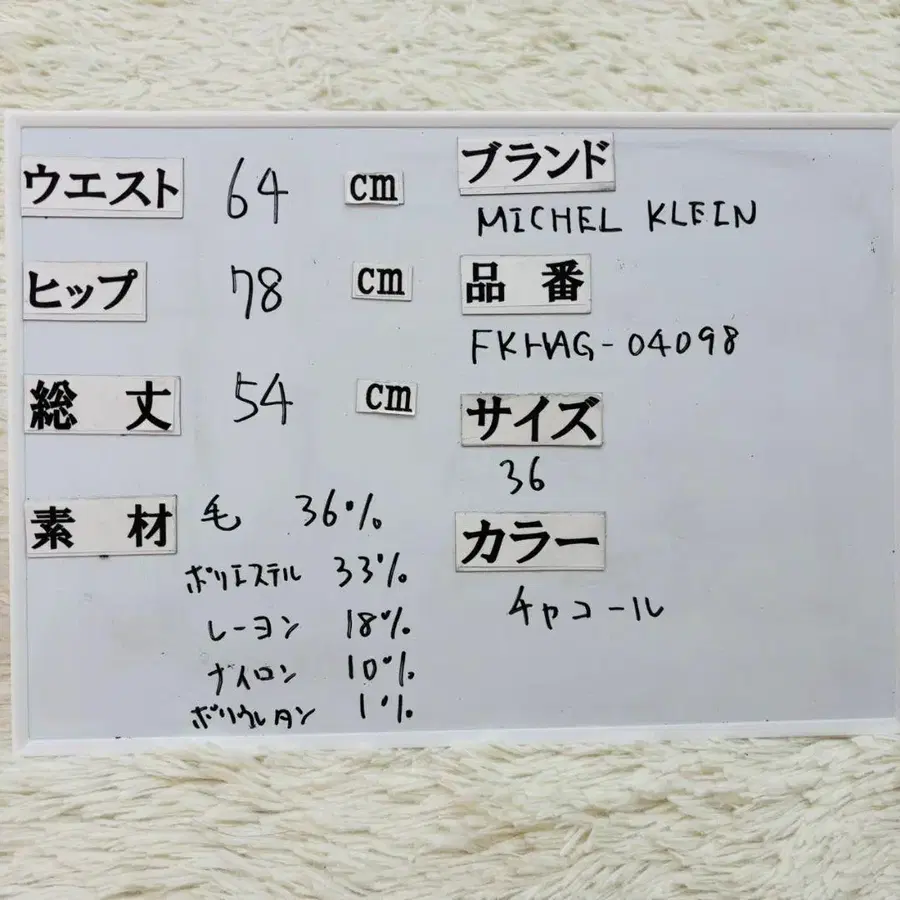 ウエスト 64 cm
ヒップ 78 cm
総丈 54 cm
素材 毛 36%
ポリエステル 33%
レーヨン 18%
ナイロン 10%
ポリウレタン 1%
ブランド
MICHEL KLEIN
品番
FKHAG-04098
サイズ
36
カラー
チャコール